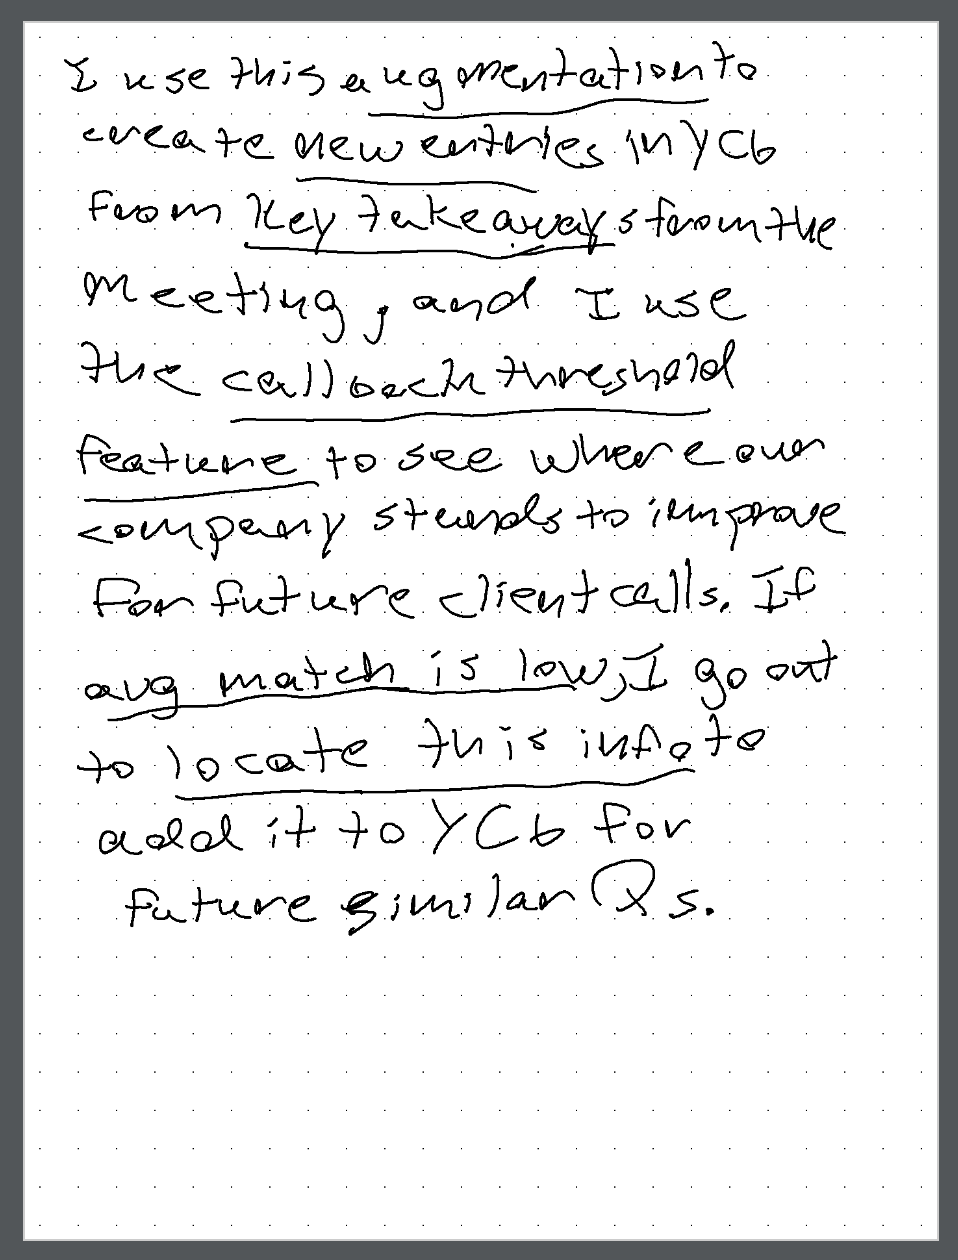 I use this augmentation to
create new entries in YCb
from key takeaways from the
meeting, and I use
the callback threshold
feature to see where our
company stands to improve
for future client calls. If
avg match is low, I go out
to locate this info to
add it to YCb for
future similar Qs.